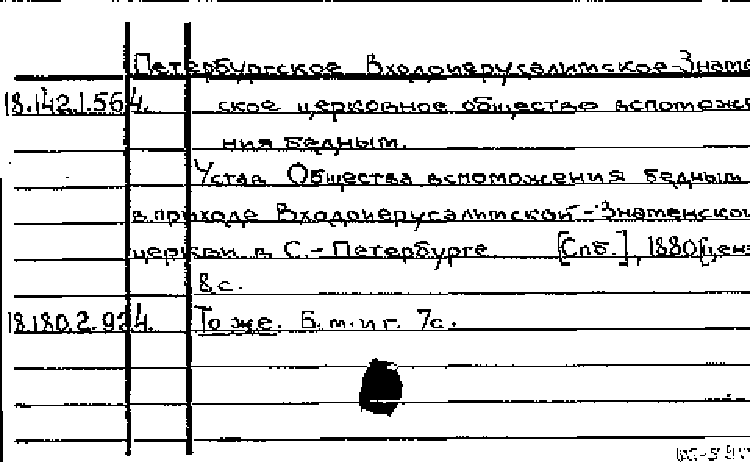 Петербургское Входоиерусалимское-Знаме
18.142.1.564. ское церковное общество вспоможе
ния бедным.
Устав Общества вспоможения бедным
в приходе Входоиерусалимской-Знаменской
церкви в С.-Петербурге [Спб.], 1880 [ценз
8 с.
18.180.2.924. То же. Б. м. и г. 7с.